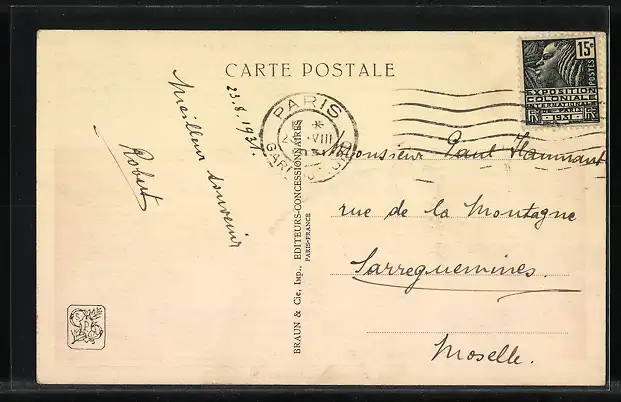 CARTE POSTALE
23.8.1931.
Meilleur souvenir
Robert
BRAUN & Cie, Imp., EDITEURS-CONCESSIONNAIRES
PARIS-FRANCE
PARIS
VIII
GARE
15c
POSTES
EXPOSITION
COLONIALE
INTERNATIONALE
PARIS
1931
Monsieur Paul
rue de la Montagne
Sarreguemines.
Moselle.